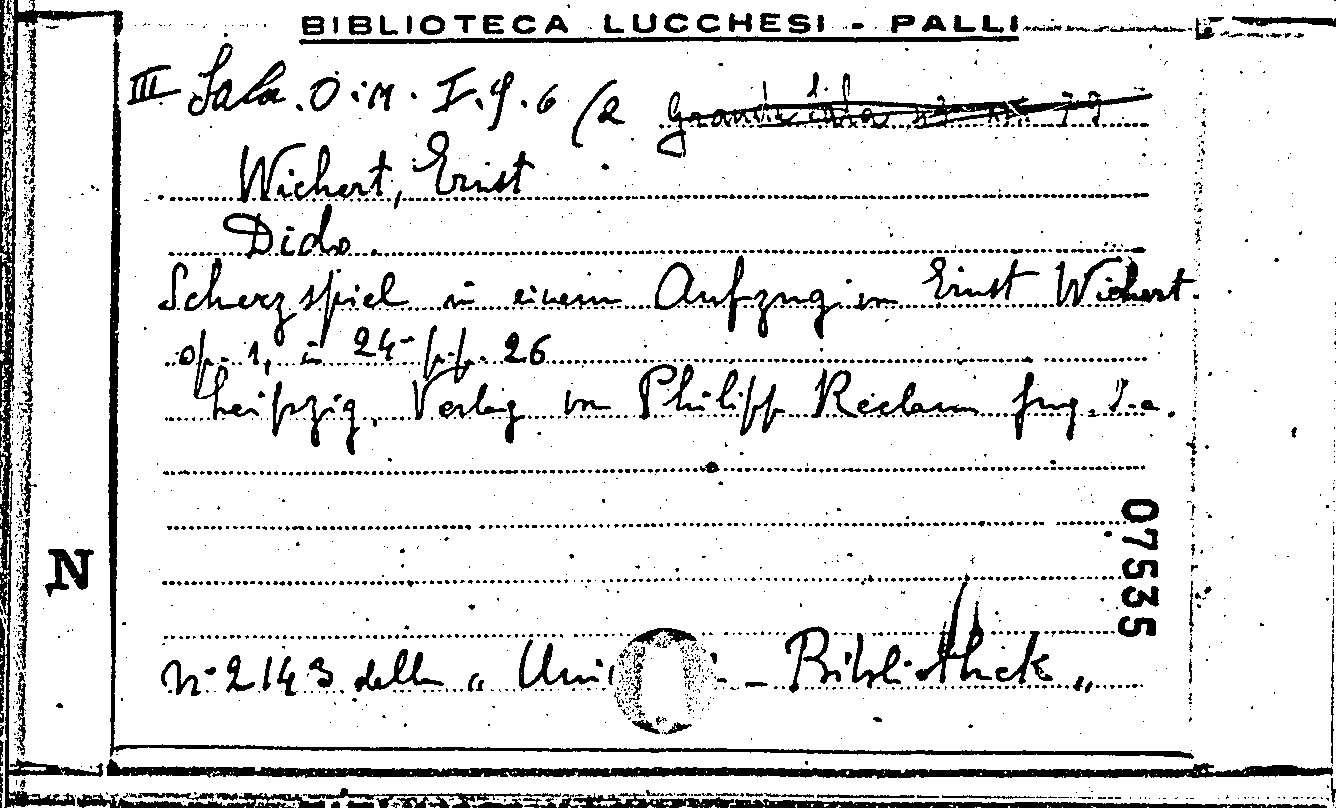 BIBLIOTECA LUCCHESI - PALLI
III Sala. O. M. I. 9. 6 (2
Wichert, Ernst
Dido.
Scherzspiel in einem Aufzug von Ernst Wichert.
op. 1, in 24° pp. 26
Leipzig, Verlag von Philipp Reclam jung. S.a.
07535
N
N° 2143 della „ Uni - Bibliothek „